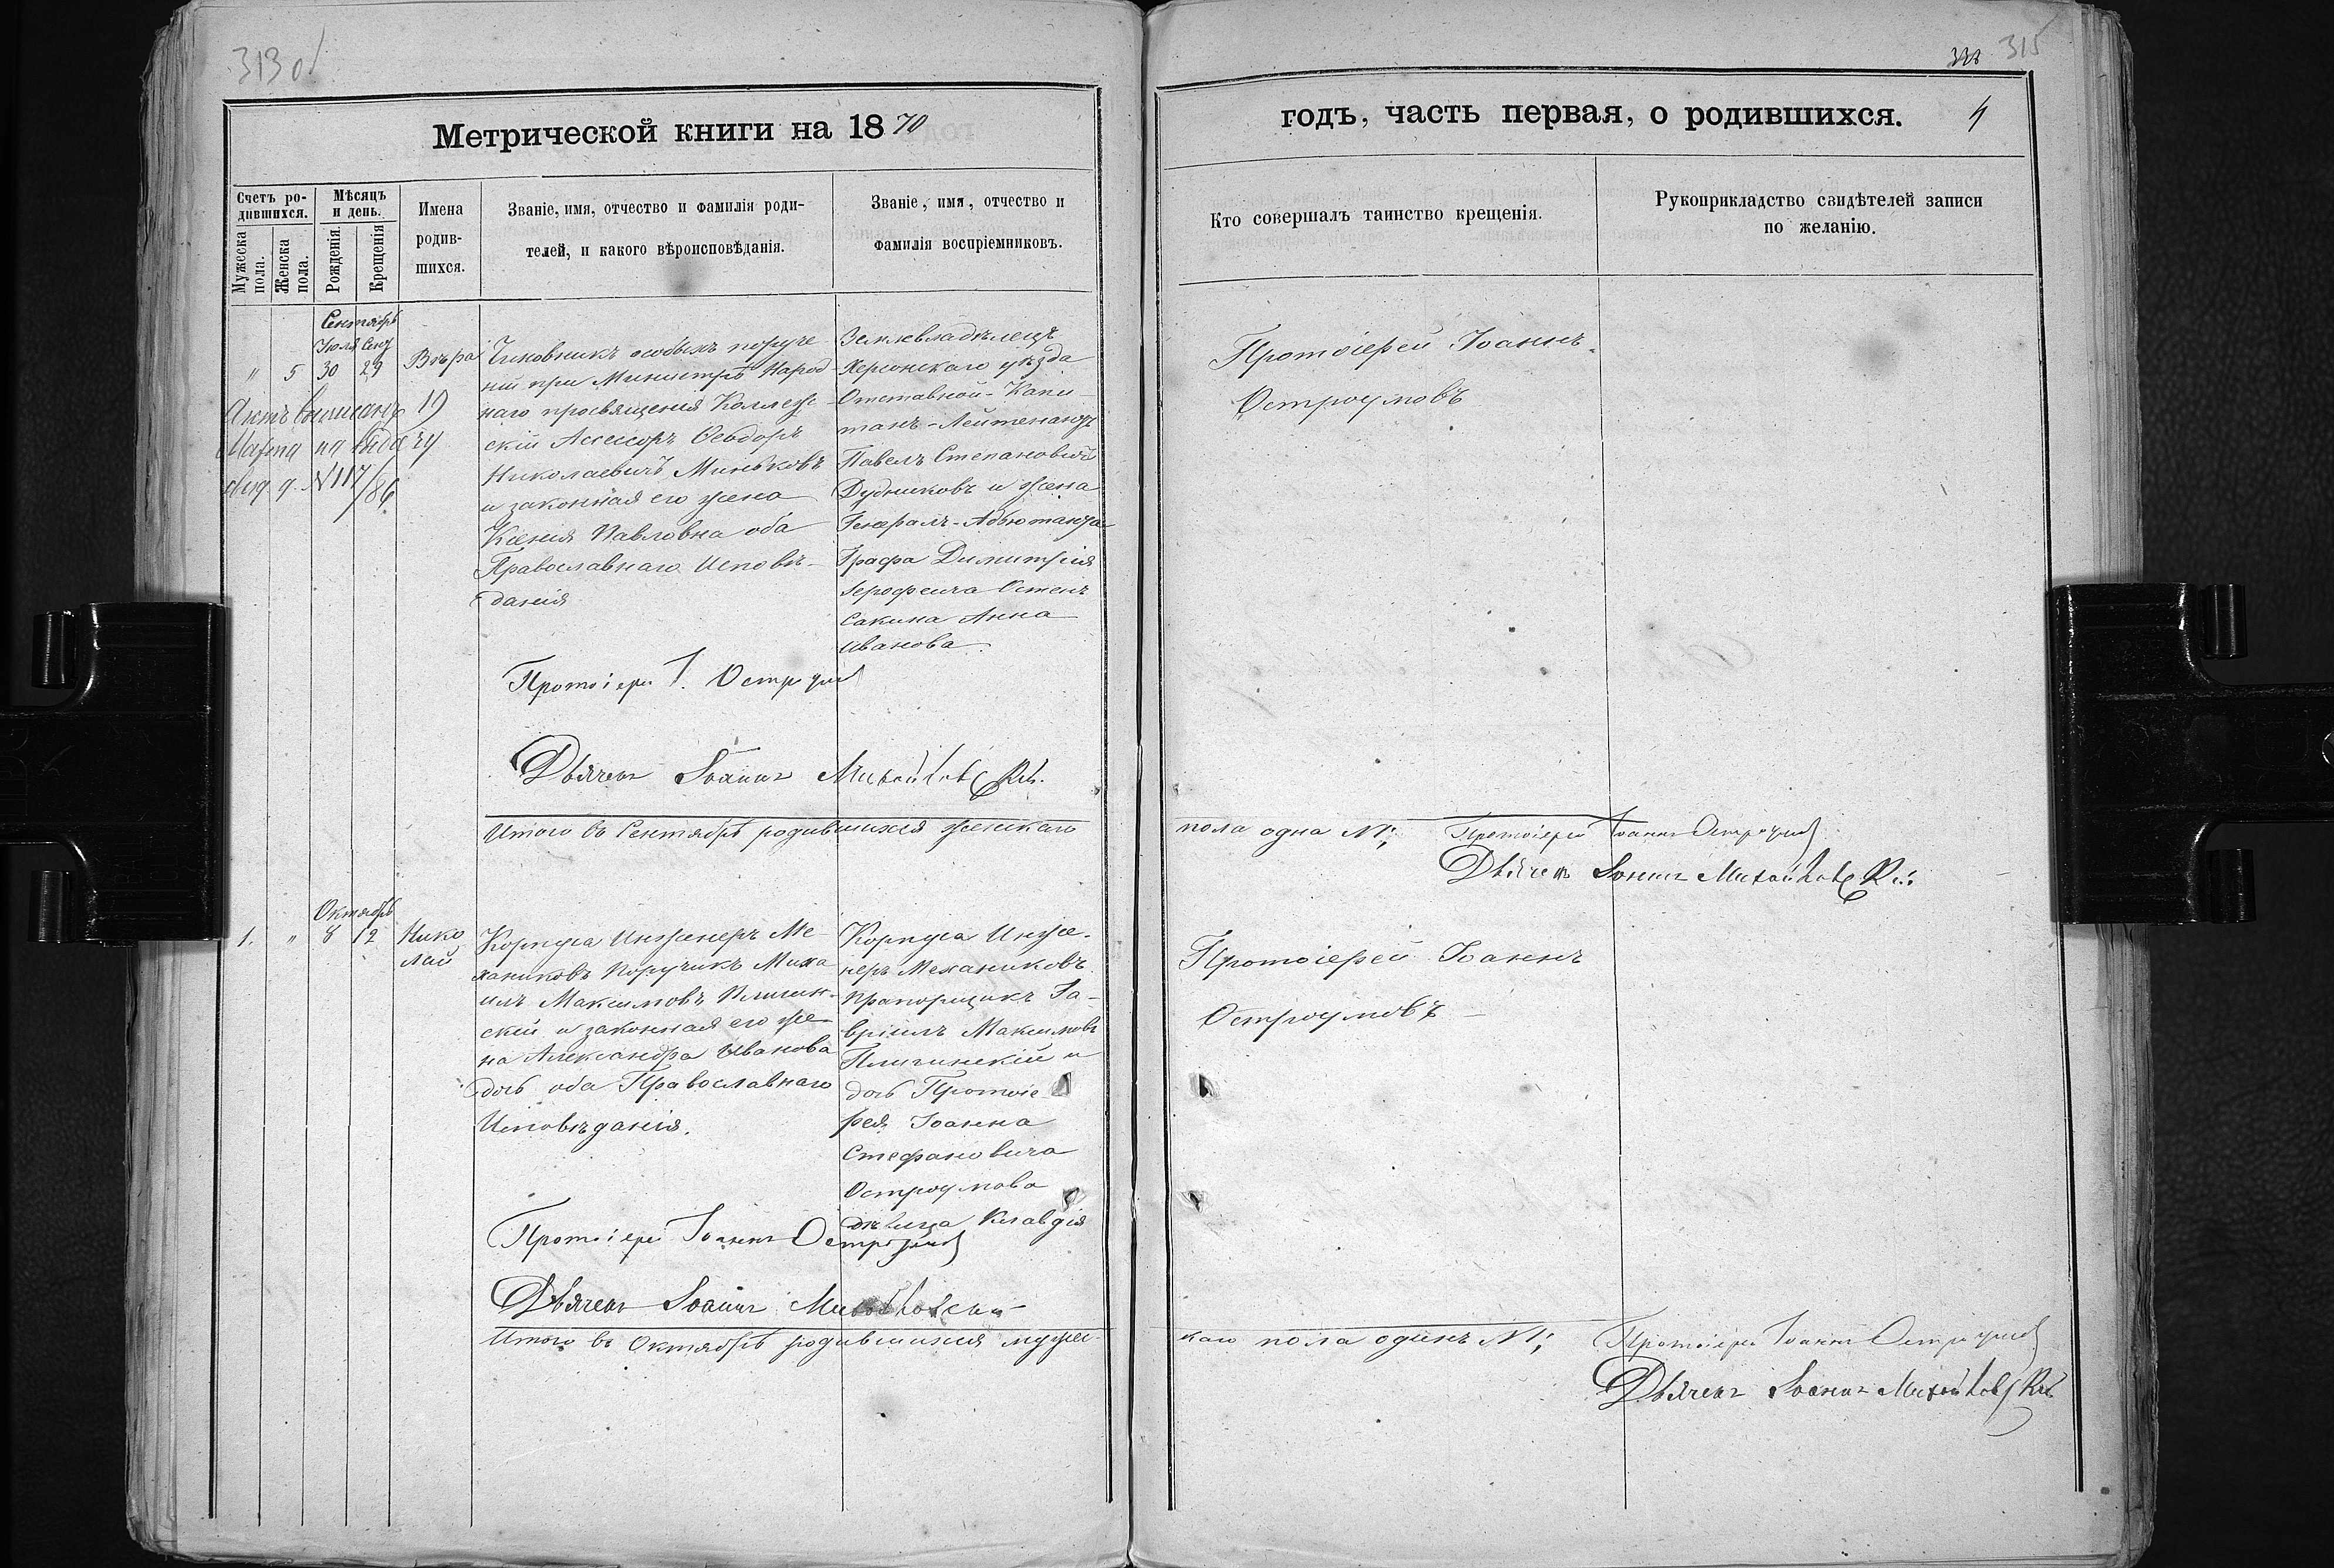 313 об
332 315
Метрической книги на 1870
годъ, часть первая, о родившихся. 4
Счетъ ро-
дившихся.
Мужеска
пола.
Женска
пола.
Мѣсяцъ
и день.
Рожденія.
Крещенія
Имена
родив-
шихся.
Званіе, имя, отчество и фамилія роди-
телей, и какого вѣроисповѣданія.
Званіе, имя, отчество и
фамилія воспріемниковъ.
Кто совершалъ таинство крещенія.
Рукоприкладство свидѣтелей записи
по желанію.
Сентябрь
Іюля Сент
" 5 30 29
Вѣра
Актъ выписанъ 19
Марта на выдачу
N 117/86
Чиновникъ особыхъ поруче
ній при Министрѣ Народ-
наго просвященія Коллеж-
скій Ассесоръ Ѳеодоръ
Николаевичъ Миньковъ
и законная его жена
Ксенія Павловна оба
Православнаго Исповѣ-
данія
Землевладѣлецъ
Херсонскаго уѣзда
Отставной Капи-
танъ-Лейтенантъ
Павелъ Степановичъ
Дудниковъ и жена
Генералъ-Адьютанта
Графа Димитрія
Іерофеича Остенъ
Сакина Анна
Иванова.
Протоіерей Іоаннъ
Остроумовъ
Протоіерей І. Остроумов
Дьячекъ Іоаннъ
Итого въ Сентябрѣ родившихся женскаго
пола одна N 1; Протоіерей Іоаннъ Остроумов
Дьячекъ Іоаннъ
Октябрь
1. " 8 12
Нико
лай
Корпуса Инженеръ Ме-
ханиковъ Поручикъ Миха
илъ Максимовъ Пличин-
скій и законная его же-
на Александра Иванова
дочь оба Православнаго
Исповѣданія.
Корпуса Инже-
неръ Механиковъ
прапорщикъ Га-
вріилъ Максимовъ
Пличинскій и
дочь Протоіе
рея Іоанна
Стефановича
Остроумова
дѣвица Клавдія
Протоіерей Іоаннъ
Остроумовъ
Протоіерей Іоаннъ Остроумов
Дьячекъ Іоаннъ
Итого въ Октябрѣ родившихся мужес-
каго пола одинъ N 1; Протоіерей Іоаннъ Остроумов
Дьячекъ Іоаннъ